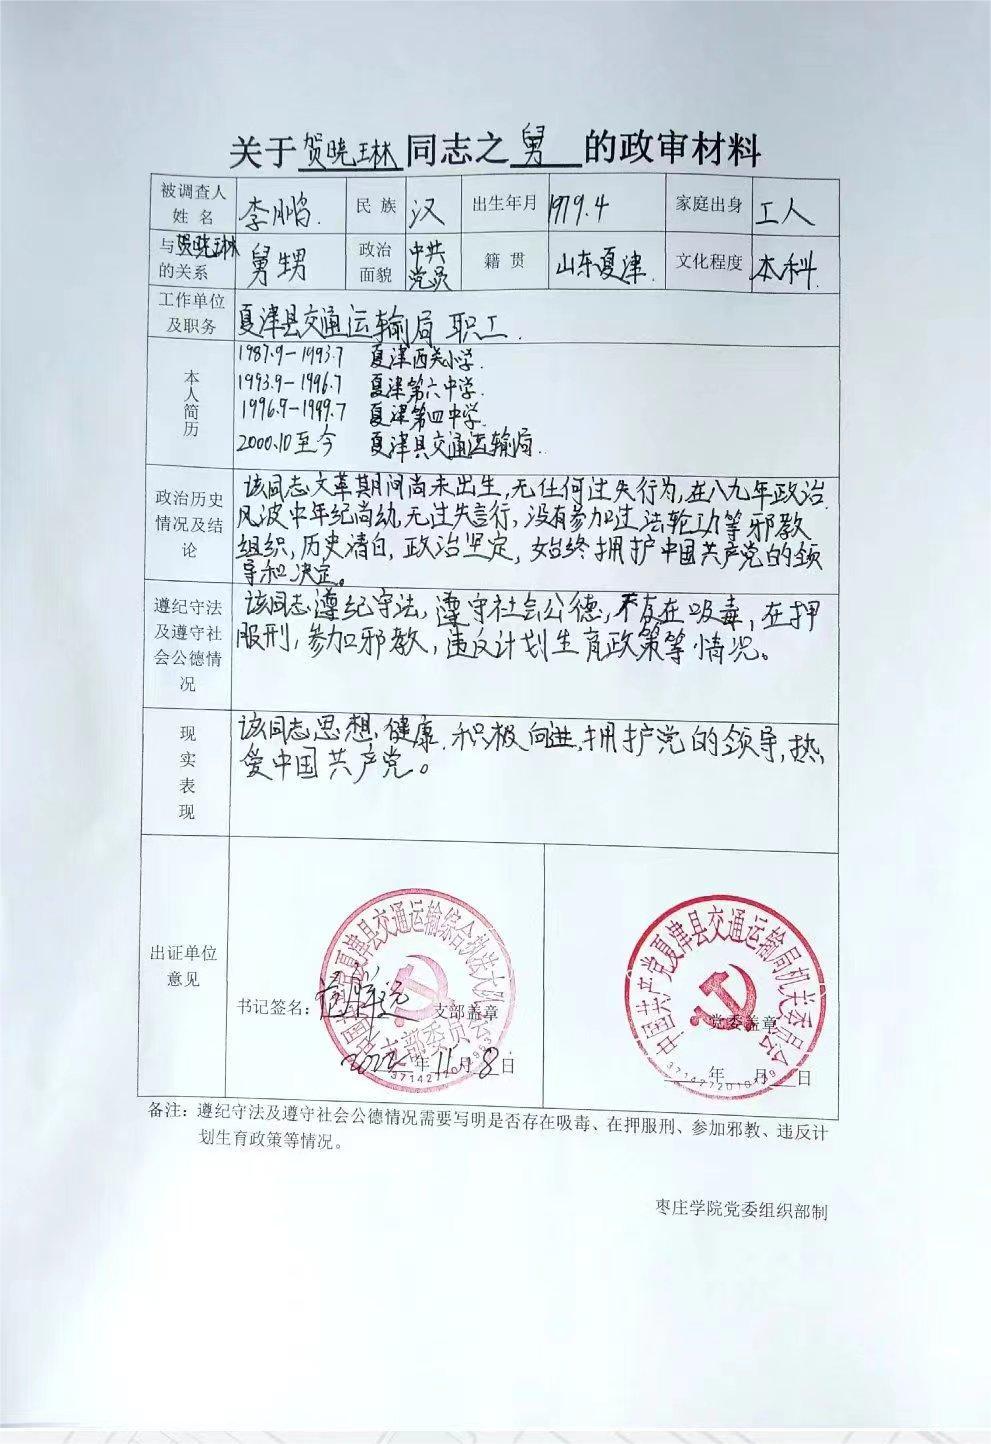 关于贺晓琳同志之舅的政审材料
被调查人姓名 李鹏 民族 汉 出生年月 1979.4 家庭出身 工人
与贺晓琳的关系 舅甥 政治面貌 中共党员 籍贯 山东夏津. 文化程度 本科.
工作单位及职务 夏津县交通运输局 职工.
本人简历
1987.9-1993.7 夏津西关小学.
1993.9-1996.7 夏津第六中学.
1996.9-1999.7 夏津第四中学.
2000.10至今 夏津县交通运输局.
政治历史情况及结论
该同志文革期间尚未出生,无任何过失行为,在八九年政治
风波中年纪尚幼,无过失言行,没有参加过法轮功等邪教
组织,历史清白,政治坚定,始终拥护中国共产党的领
导和决定。
遵纪守法及遵守社会公德情况
该同志遵纪守法,遵守社会公德,不存在吸毒,在押
服刑,参加邪教,违反计划生育政策等情况。
现实表现
该同志思想健康,积极向进,拥护党的领导,热
爱中国共产党。
出证单位意见
书记签名: 支部盖章
2022年11月8日
夏津县交通运输综合执法大队
支部委员会
中国共产党夏津县交通运输局机关委员会
党委盖章
年 月 日
备注:遵纪守法及遵守社会公德情况需要写明是否存在吸毒、在押服刑、参加邪教、违反计
划生育政策等情况。
枣庄学院党委组织部制